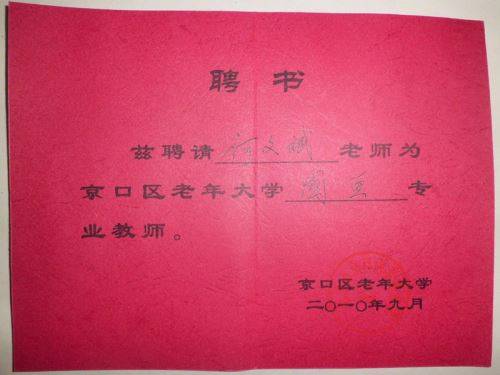 聘书
兹聘请 文斌 老师为
京口区老年大学 国画 专
业教师。
京口区老年大学
二〇一〇年九月